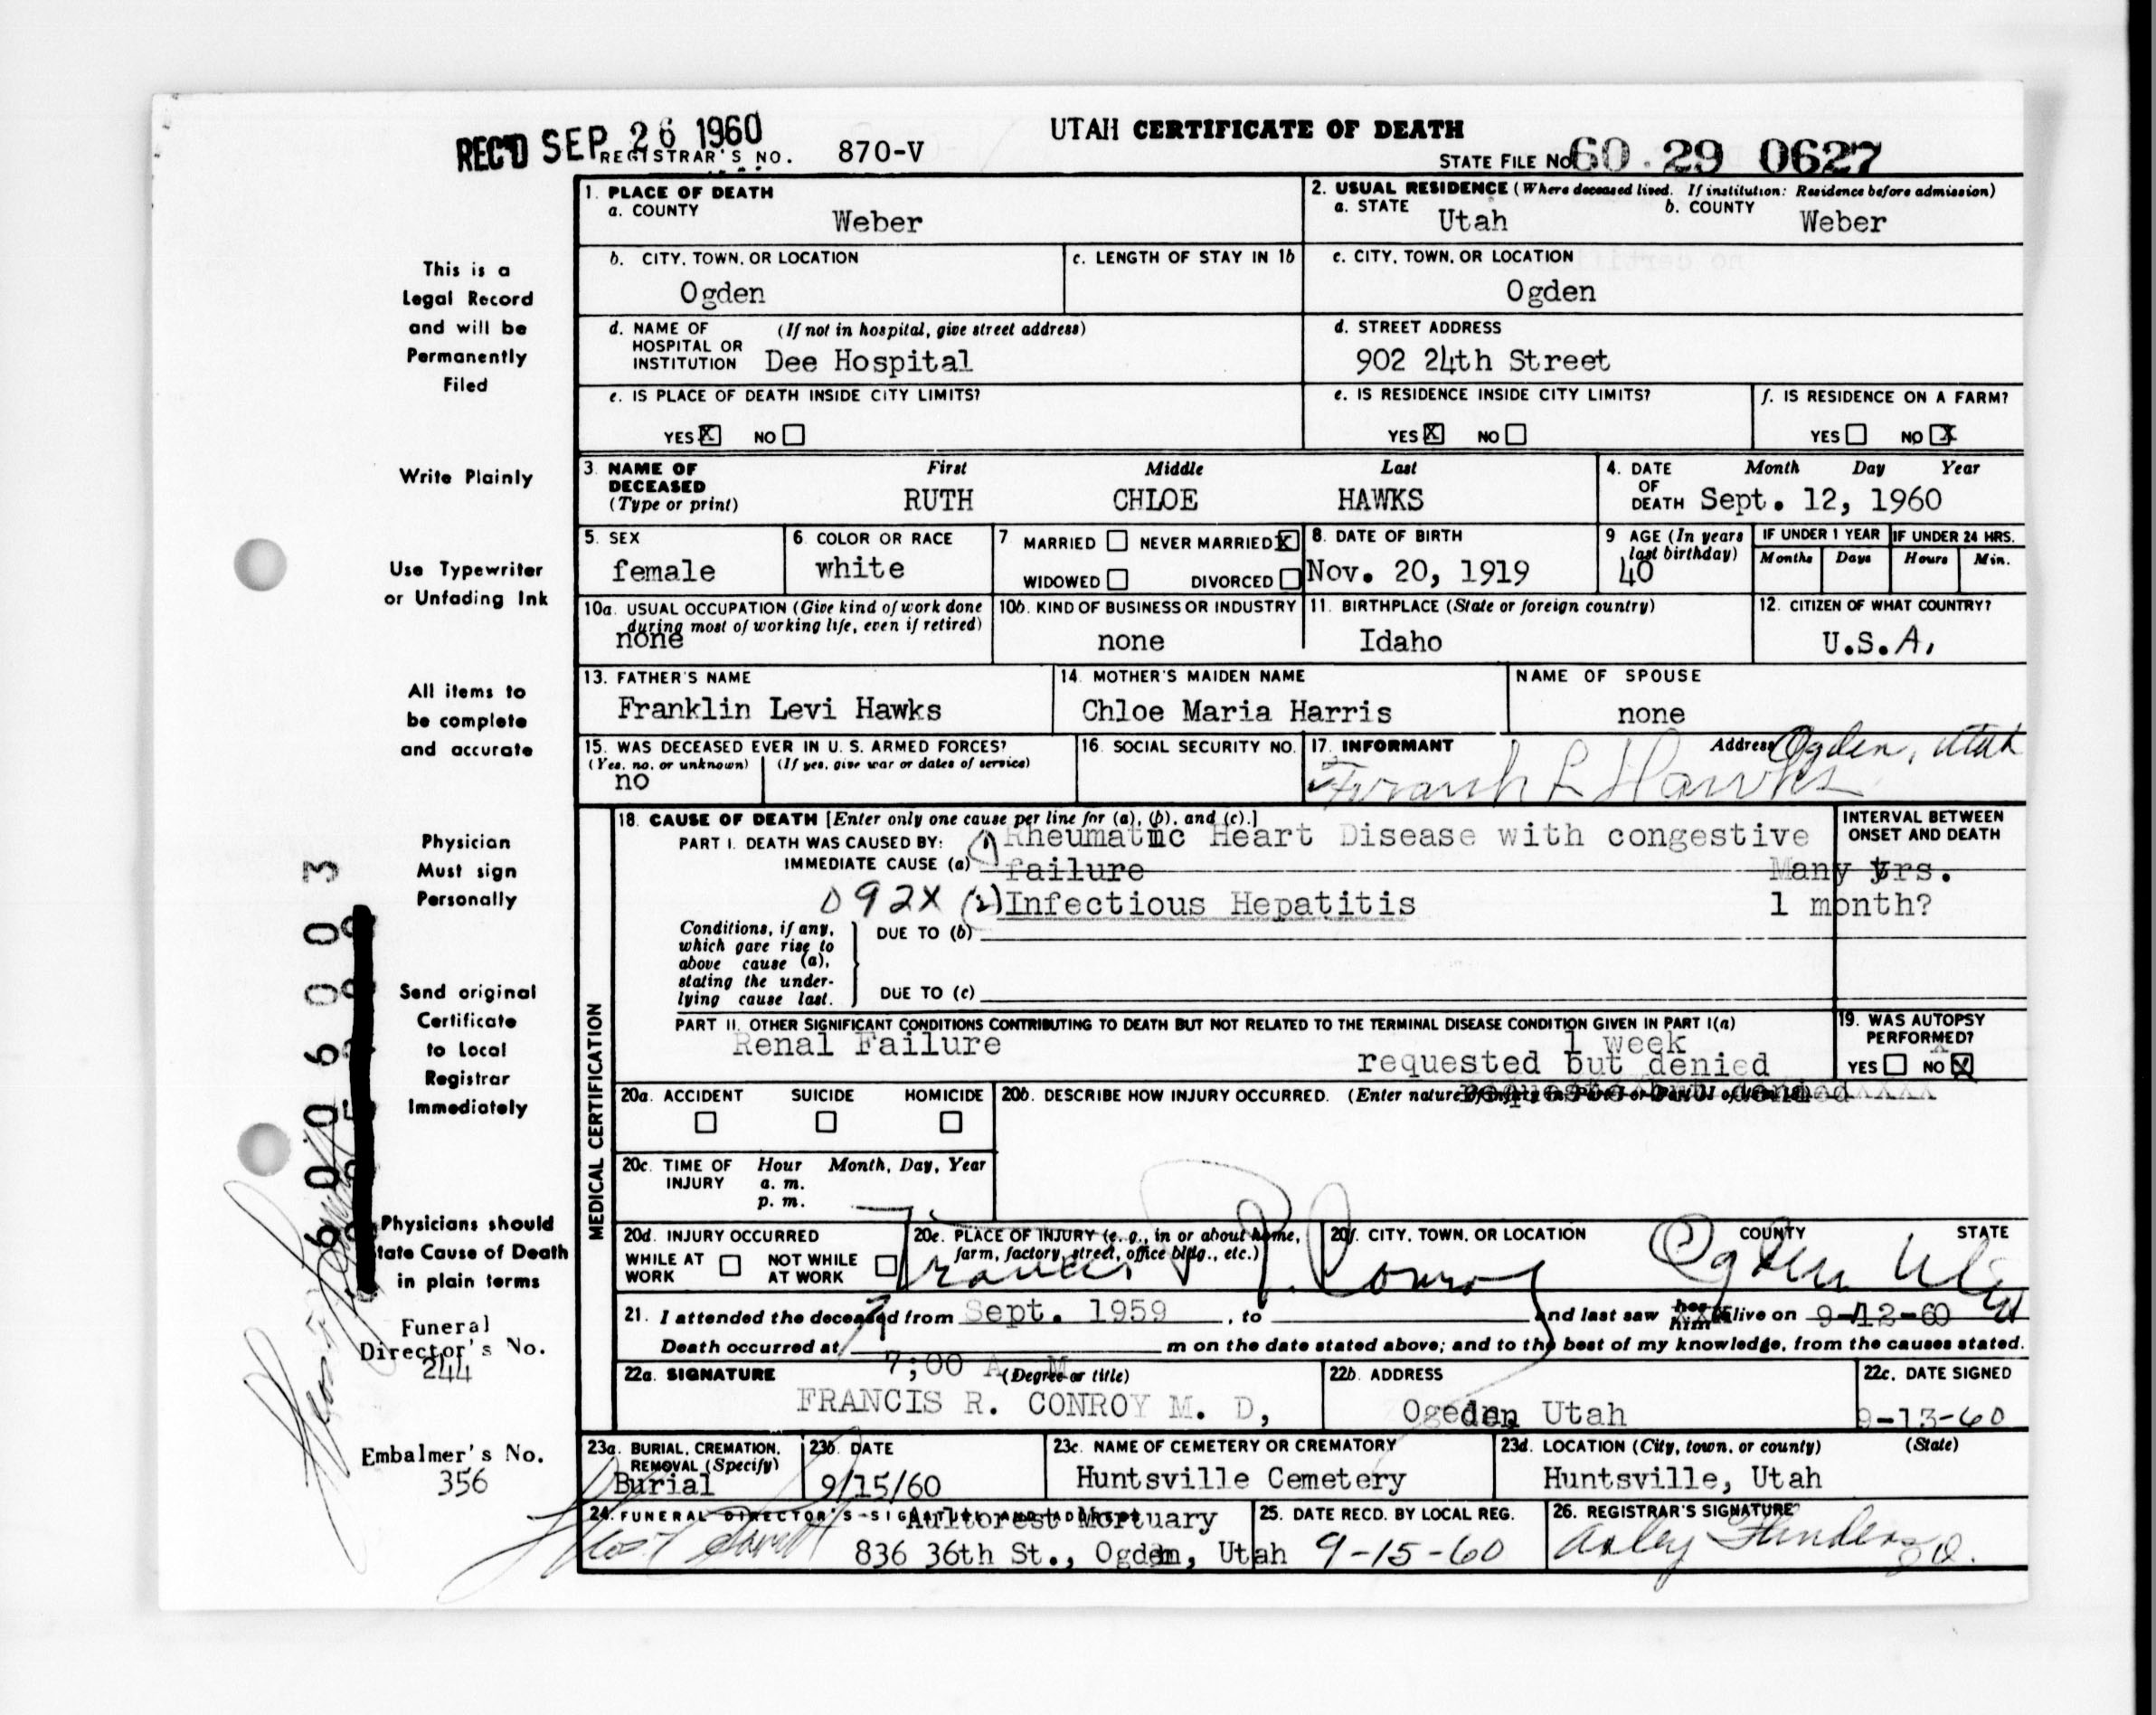 UTAH CERTIFICATE OF DEATH
REC'D SEP 26 1960
REGISTRAR'S NO. 870-V
STATE FILE NO. 60 . 29 0627
1. PLACE OF DEATH
a. COUNTY Weber
2. USUAL RESIDENCE (Where deceased lived. If institution: Residence before admission)
a. STATE Utah b. COUNTY Weber
b. CITY, TOWN, OR LOCATION Ogden
c. LENGTH OF STAY IN 1b
c. CITY, TOWN, OR LOCATION Ogden
d. NAME OF HOSPITAL OR INSTITUTION (If not in hospital, give street address) Dee Hospital
d. STREET ADDRESS 902 24th Street
e. IS PLACE OF DEATH INSIDE CITY LIMITS?
YES X NO
e. IS RESIDENCE INSIDE CITY LIMITS?
YES X NO
f. IS RESIDENCE ON A FARM?
YES NO X
3. NAME OF DECEASED (Type or print)
First Middle Last
RUTH CHLOE HAWKS
4. DATE OF DEATH Month Day Year
Sept. 12, 1960
5. SEX female
6. COLOR OR RACE white
7 MARRIED NEVER MARRIED X
WIDOWED DIVORCED
8. DATE OF BIRTH Nov. 20, 1919
9 AGE (In years last birthday) 40
IF UNDER 1 YEAR Months Days
IF UNDER 24 HRS. Hours Min.
10a. USUAL OCCUPATION (Give kind of work done during most of working life, even if retired) none
10b. KIND OF BUSINESS OR INDUSTRY none
11. BIRTHPLACE (State or foreign country) Idaho
12. CITIZEN OF WHAT COUNTRY? U.S.A.
13. FATHER'S NAME Franklin Levi Hawks
14. MOTHER'S MAIDEN NAME Chloe Maria Harris
NAME OF SPOUSE none
15. WAS DECEASED EVER IN U. S. ARMED FORCES?
(Yes, no, or unknown) (If yes, give war or dates of service)
no
16. SOCIAL SECURITY NO.
17. INFORMANT Address
Frank L Hawks Ogden, Utah
MEDICAL CERTIFICATION
18. CAUSE OF DEATH [Enter only one cause per line for (a), (b), and (c).]
INTERVAL BETWEEN ONSET AND DEATH
PART I. DEATH WAS CAUSED BY:
IMMEDIATE CAUSE (a) (1) Rheumatic Heart Disease with congestive
failure Many yrs.
092X (2) Infectious Hepatitis 1 month?
Conditions, if any, which gave rise to above cause (a), stating the underlying cause last.
DUE TO (b)
DUE TO (c)
PART II. OTHER SIGNIFICANT CONDITIONS CONTRIBUTING TO DEATH BUT NOT RELATED TO THE TERMINAL DISEASE CONDITION GIVEN IN PART I(a)
Renal Failure 1 week
requested but denied
19. WAS AUTOPSY PERFORMED?
YES NO X
20a. ACCIDENT SUICIDE HOMICIDE
20b. DESCRIBE HOW INJURY OCCURRED. (Enter nature of injury in Part I or Part II of item 18)
20c. TIME OF INJURY Hour Month, Day, Year
a. m.
p. m.
20d. INJURY OCCURRED
WHILE AT WORK NOT WHILE AT WORK
20e. PLACE OF INJURY (e. g., in or about home, farm, factory, street, office bldg., etc.)
20f. CITY, TOWN, OR LOCATION COUNTY STATE
Francis R. Conroy Ogden Utah
21. I attended the deceased from Sept. 1959, to and last saw her him alive on 9-12-60
Death occurred at 7;00 A. M m on the date stated above; and to the best of my knowledge, from the causes stated.
22a. SIGNATURE (Degree or title)
FRANCIS R. CONROY M. D,
22b. ADDRESS
Ogeden, Utah
22c. DATE SIGNED
9-13-60
23a. BURIAL, CREMATION, REMOVAL (Specify) Burial
23b. DATE 9/15/60
23c. NAME OF CEMETERY OR CREMATORY Huntsville Cemetery
23d. LOCATION (City, town, or county) (State)
Huntsville, Utah
24. FUNERAL DIRECTOR'S SIGNATURE AND ADDRESS
Aultorest Mortuary
836 36th St., Ogden, Utah
25. DATE RECD. BY LOCAL REG. 9-15-60
26. REGISTRAR'S SIGNATURE
This is a
Legal Record
and will be
Permanently
Filed
Write Plainly
Use Typewriter
or Unfading Ink
All items to
be complete
and accurate
Physician
Must sign
Personally
Send original
Certificate
to Local
Registrar
Immediately
Physicians should
state Cause of Death
in plain terms
Funeral
Director's No.
244
Embalmer's No.
356
60060003